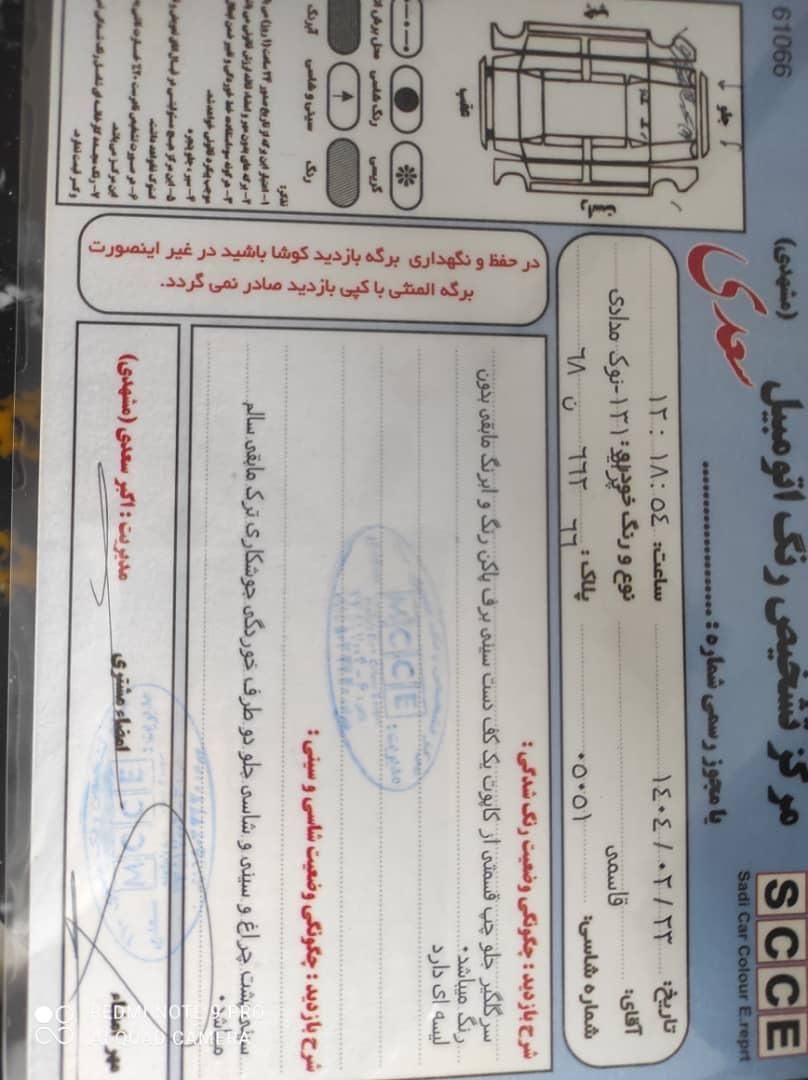 SCCE
Sadi Car Colour E.reprt
مرکز تشخیص رنگ اتومبیل
سعدی
(مشهدی)
61066
با مجوز رسمی شماره :
تاریخ: ۱۴۰۴/۰۲/۲۳
ساعت: ۱۲:۱۸:۵۴
آقای: قاسمی
نوع و رنگ خودرو: پراید ۱۳۱-نوک مدادی
شماره شاسی: ۰۵۰۵۱
پلاک: ۶۶ ۶۶۳ ن ۶۸
جلو
عقب
گریسی
رنگ شاسی
رنگ
سینی و شاسی
آبرنگ
تذکر:
در حفظ و نگهداری برگه بازدید کوشا باشید در غیر اینصورت
برگه المثنی با کپی بازدید صادر نمی گردد.
شرح بازدید : چگونگی وضعیت رنگ شدگی :
سر گلگیر جلو چپ قسمتی از کاپوت یک کف دست سینی برف پاکن رنگ و ابرنگ مابقی بدون
رنگ میباشد.
لیسه ای دارد
شرح بازدید : چگونگی وضعیت شاسی و سینی :
سینی پشت چراغ و سینی و شاسی جلو دو طرف خوردگی جوشکاری ترک مابقی سالم
میباشد.
MCCE
مدیریت : اکبر سعدی (مشهدی)
امضاء مشتری
مهر و امضاء
REDMI NOTE 9 PRO
AI QUAD CAMERA